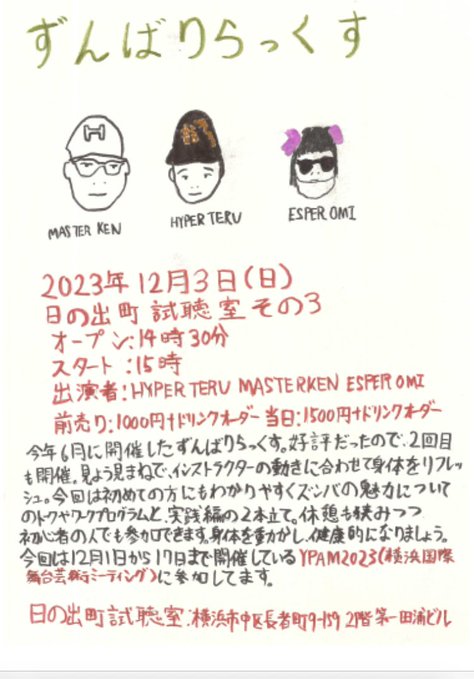 ずんばりらっくす
H
MASTER KEN
HYPER TERU
ESPER OMI
2023年12月3日(日)
日の出町試聴室その3
オープン:14時30分
スタート:15時
出演者:HYPER TERU MASTERKEN ESPER OMI
前売り:1000円+ドリンクオーダー 当日:1500円+ドリンクオーダー
今年6月に開催したずんばりらっくす。好評だったので、2回目
も開催。見よう見まねで、インストラクターの動きに合わせて身体をリフレッ
シュ。今回は初めての方にもわかりやすくズンバの魅力について
のトークやワークプログラムと、実践編の2本立て。休憩も挟みつつ
初心者の人でも参加できます。身体を動かし、健康的になりましょう。
今回は12月1日から17日まで開催しているYPAM2023(横浜国際
舞台芸術ミーティング)に参加してます。
日の出町試聴室:横浜市中区長者町9-159 2階 第一田浦ビル